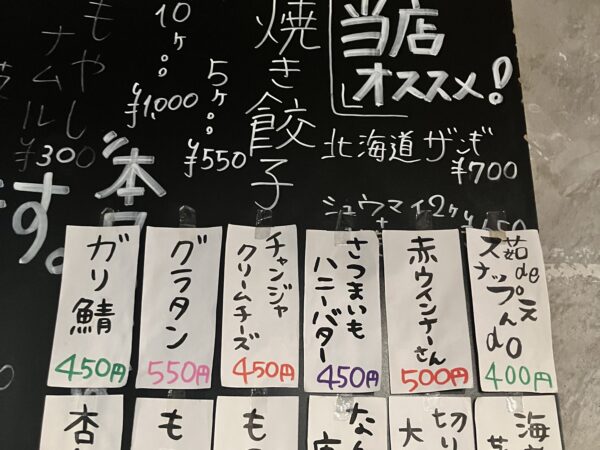 当店
オススメ!
北海道ザンギ
¥700
シュウマイ2ケ
焼き餃子
5ケ
¥550
10ケ
¥1,000
もやし
ナムル
¥300
本日
す。
茹de
スナップえんdo
400円
赤ウインナーさん
500円
さつまいも
ハニーバター
450円
チャンジャ
クリームチーズ
450円
グラタン
550円
ガリ鯖
450円
海
切り
大
なん
も
も
杏